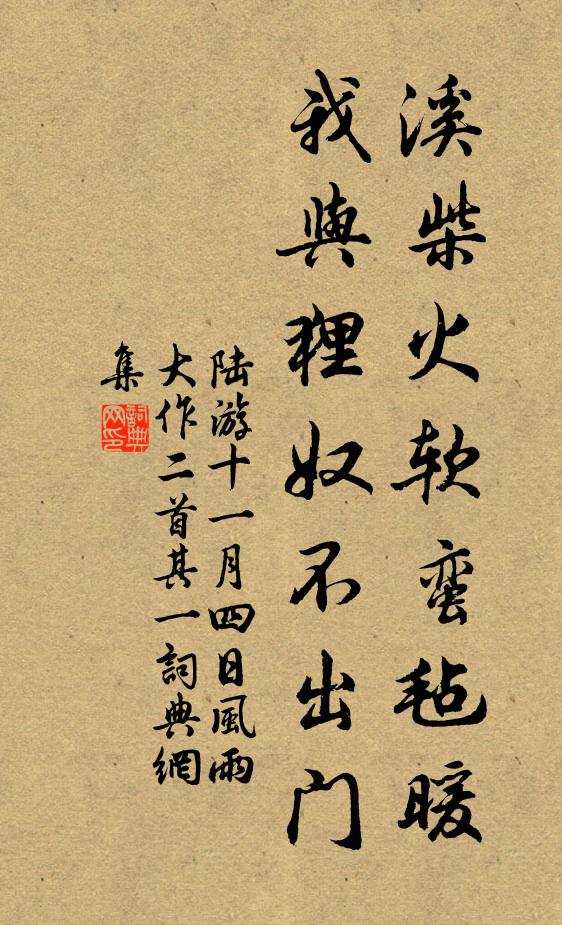 溪柴火软蛮毡暖
我與狸奴不出门
陆游十一月四日風雨
大作二首其一詞典網
集
詞典网印